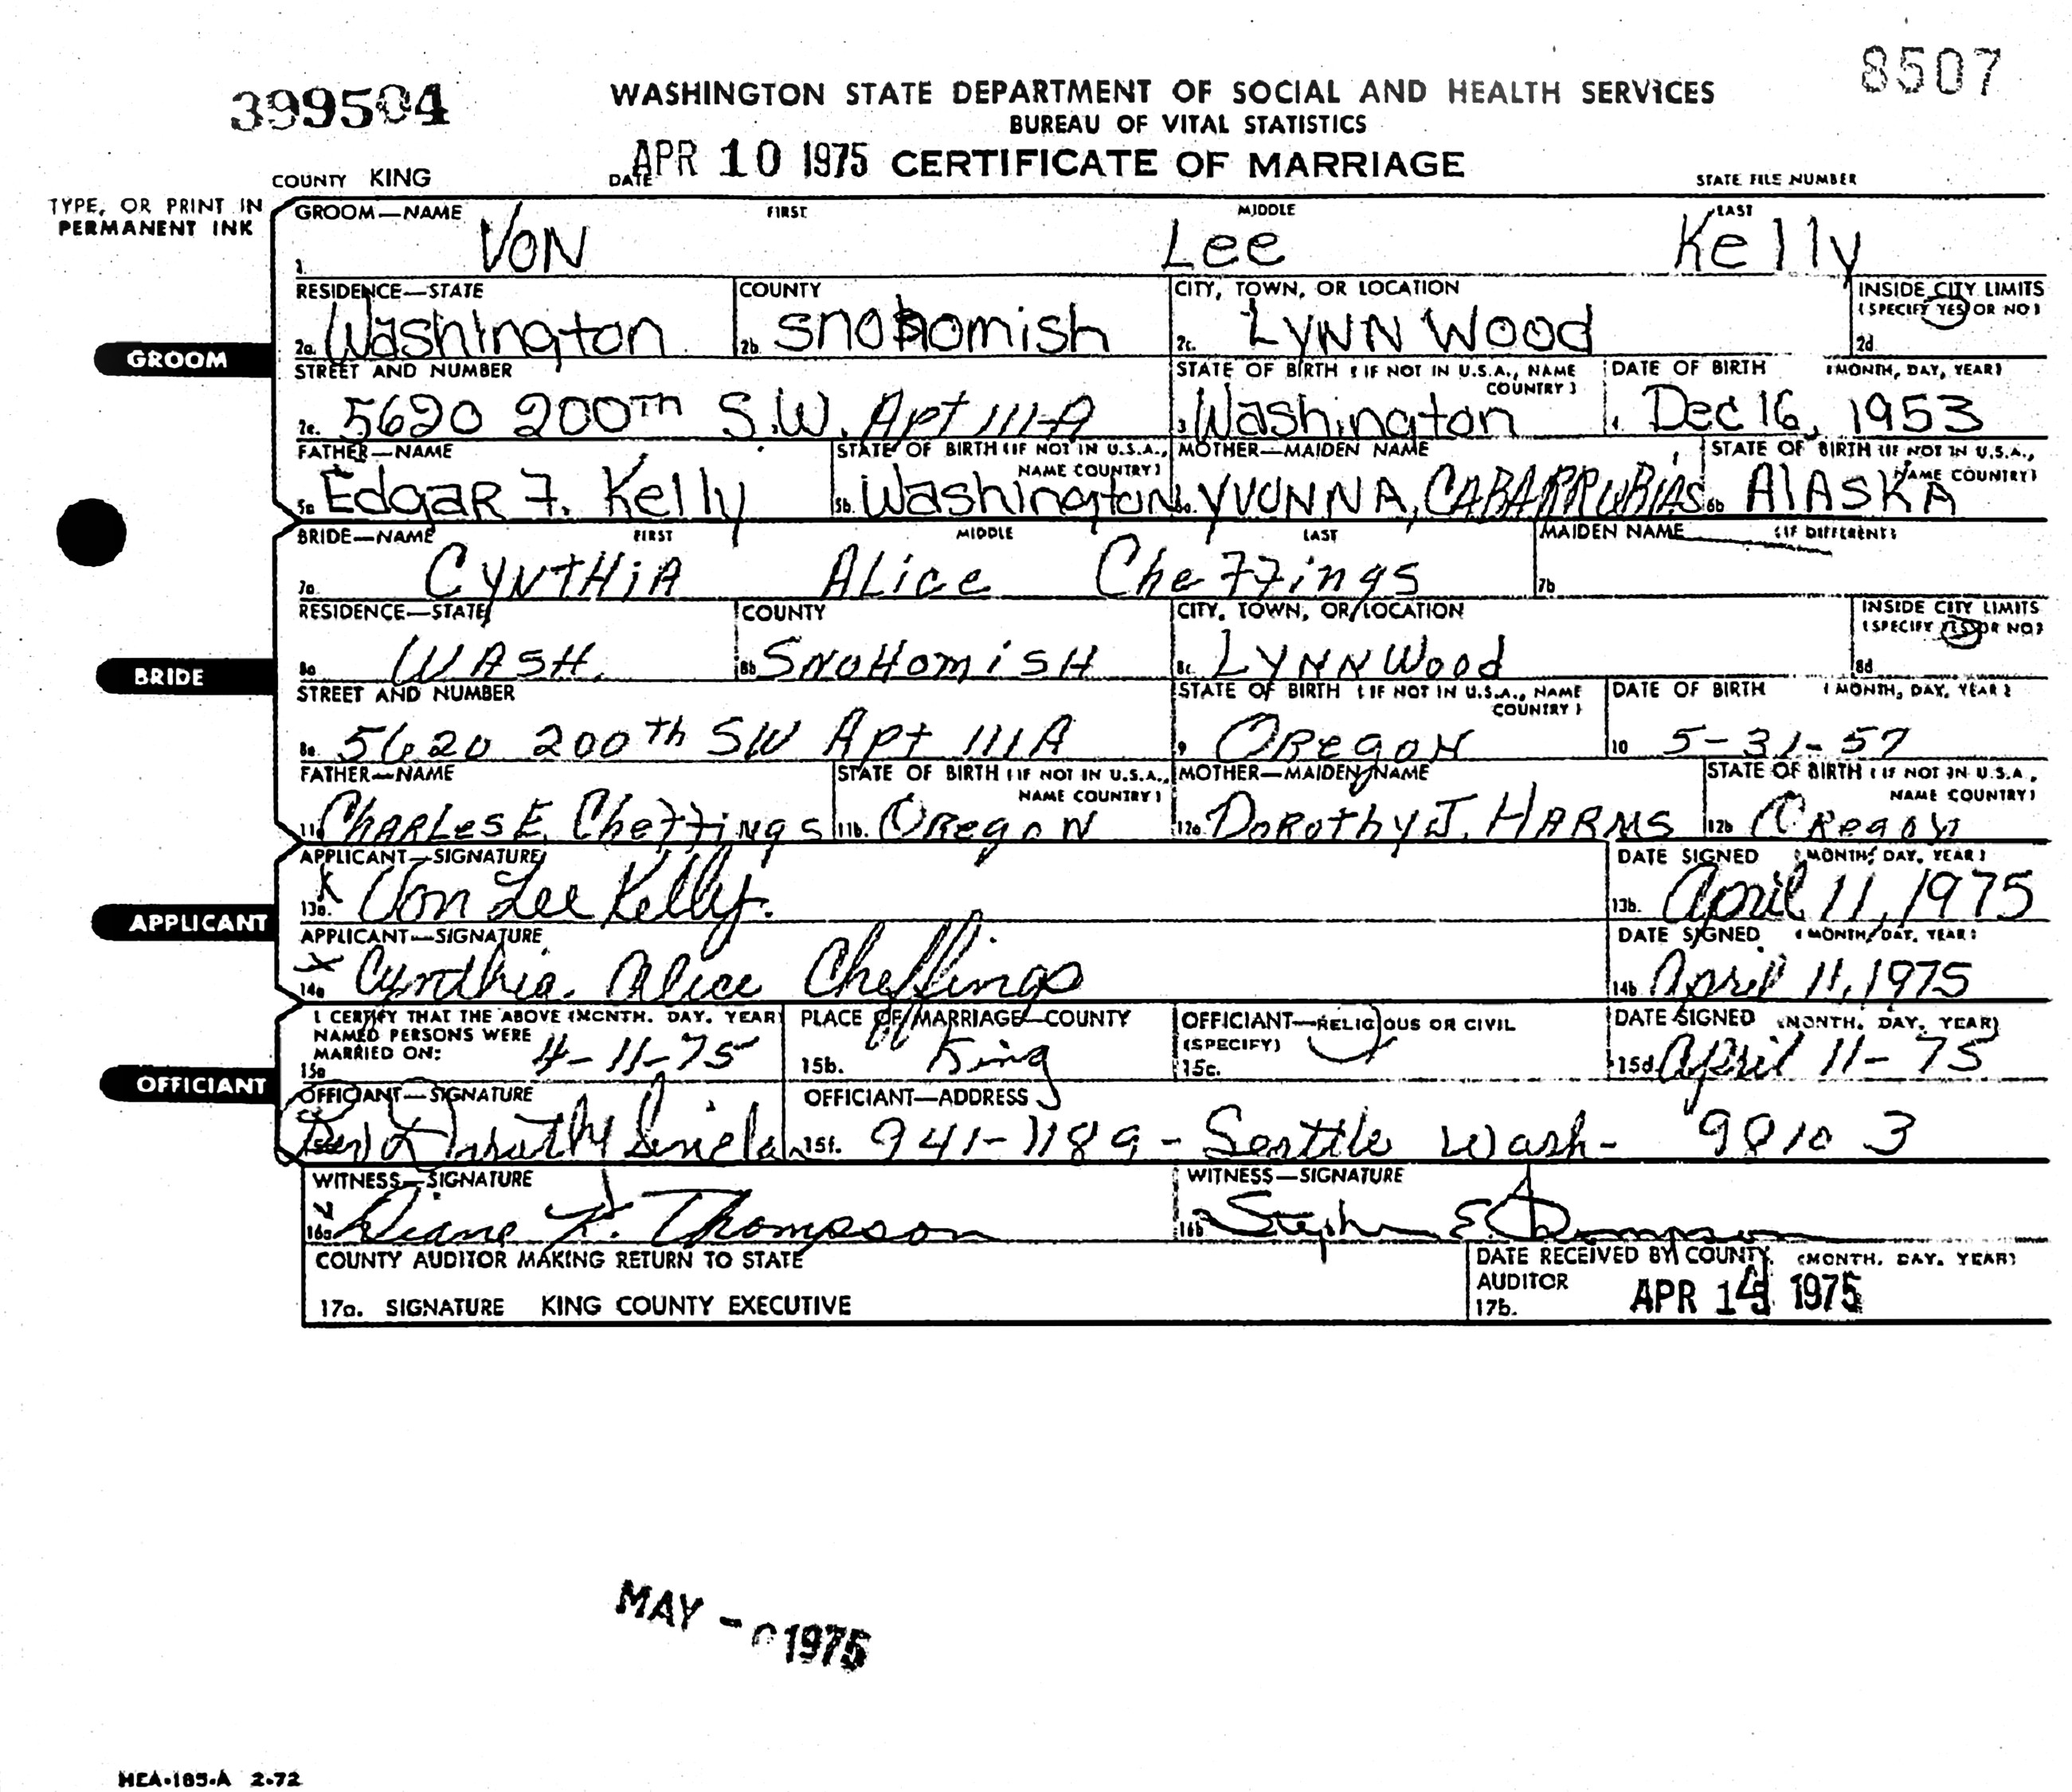 8507
399504 WASHINGTON STATE DEPARTMENT OF SOCIAL AND HEALTH SERVICES
BUREAU OF VITAL STATISTICS
COUNTY KING DATE APR 10 1975 CERTIFICATE OF MARRIAGE STATE FILE NUMBER
TYPE, OR PRINT IN
PERMANENT INK
GROOM—NAME FIRST MIDDLE LAST
1. VON Lee Kelly
RESIDENCE—STATE COUNTY CITY, TOWN, OR LOCATION INSIDE CITY LIMITS
(SPECIFY YES OR NO)
2a. Washington 2b. SNOhOmish 2c. LYNN WOOd 2d.
GROOM
STREET AND NUMBER STATE OF BIRTH (IF NOT IN U.S.A., NAME COUNTRY) DATE OF BIRTH (MONTH, DAY, YEAR)
2e. 5620 200TH S.W. Apt 111-A 3. Washington 4. Dec 16, 1953
FATHER—NAME STATE OF BIRTH (IF NOT IN U.S.A., NAME COUNTRY) MOTHER—MAIDEN NAME STATE OF BIRTH (IF NOT IN U.S.A., NAME COUNTRY)
5a. EdgaR F. Kelly 5b. Washington 6a. YVONNA, CABARRUBIAS 6b. AlASKA
BRIDE—NAME FIRST MIDDLE LAST MAIDEN NAME (IF DIFFERENT)
7a. CYNTHiA ALice Cheffings 7b
RESIDENCE—STATE COUNTY CITY, TOWN, OR LOCATION INSIDE CITY LIMITS
(SPECIFY YES OR NO)
8a. WASH. 8b SNOHOmiSH 8c. LYNNWood 8d
BRIDE
STREET AND NUMBER STATE OF BIRTH (IF NOT IN U.S.A., NAME COUNTRY) DATE OF BIRTH (MONTH, DAY, YEAR)
8e. 5620 200th SW Apt 111A 9 ORegoN 10 5-31-57
FATHER—NAME STATE OF BIRTH (IF NOT IN U.S.A., NAME COUNTRY) MOTHER—MAIDEN NAME STATE OF BIRTH (IF NOT IN U.S.A., NAME COUNTRY)
11a CHARLes E. CheffiNgs 11b. ORegoN 12a. DoRothy J. HARMS 12b ORegoN
APPLICANT—SIGNATURE DATE SIGNED (MONTH, DAY, YEAR)
13a. X Von Lee Kelly. 13b. April 11, 1975
APPLICANT
APPLICANT—SIGNATURE DATE SIGNED (MONTH, DAY, YEAR)
14a X Cynthia Alice Cheffings 14b. April 11, 1975
I CERTIFY THAT THE ABOVE (MONTH, DAY, YEAR) PLACE OF MARRIAGE—COUNTY OFFICIANT—RELIGIOUS OR CIVIL DATE SIGNED (MONTH, DAY, YEAR)
NAMED PERSONS WERE (SPECIFY)
MARRIED ON:
15a 4-11-75 15b. King 15c. 15d April 11-75
OFFICIANT
OFFICIANT—SIGNATURE OFFICIANT—ADDRESS
Dorothy 15f. 941-N89- Seattle Wash- 98103
WITNESS—SIGNATURE WITNESS—SIGNATURE
16a Diane K. Thompson 16b Stephen E. Thompson
COUNTY AUDITOR MAKING RETURN TO STATE DATE RECEIVED BY COUNTY (MONTH, DAY, YEAR)
AUDITOR
17a. SIGNATURE KING COUNTY EXECUTIVE 17b. APR 1 1975
MAY - 1975
HEA-185-A 2-72